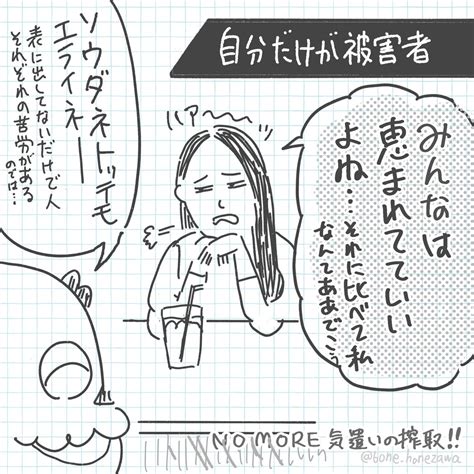 自分だけが被害者
みんなは
恵まれてていい
よね…それに比べて私
なんてああでこう
ハア〜〜
ソウダネトッテモ
エライネー
表に出してないだけで人
それぞれの苦労がある
のでは…
NO MORE 気遣いの搾取!!
@bone.honezawa